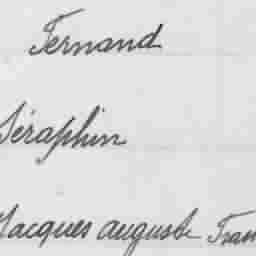 Fernand
Séraphin
Jacques auguste Fran